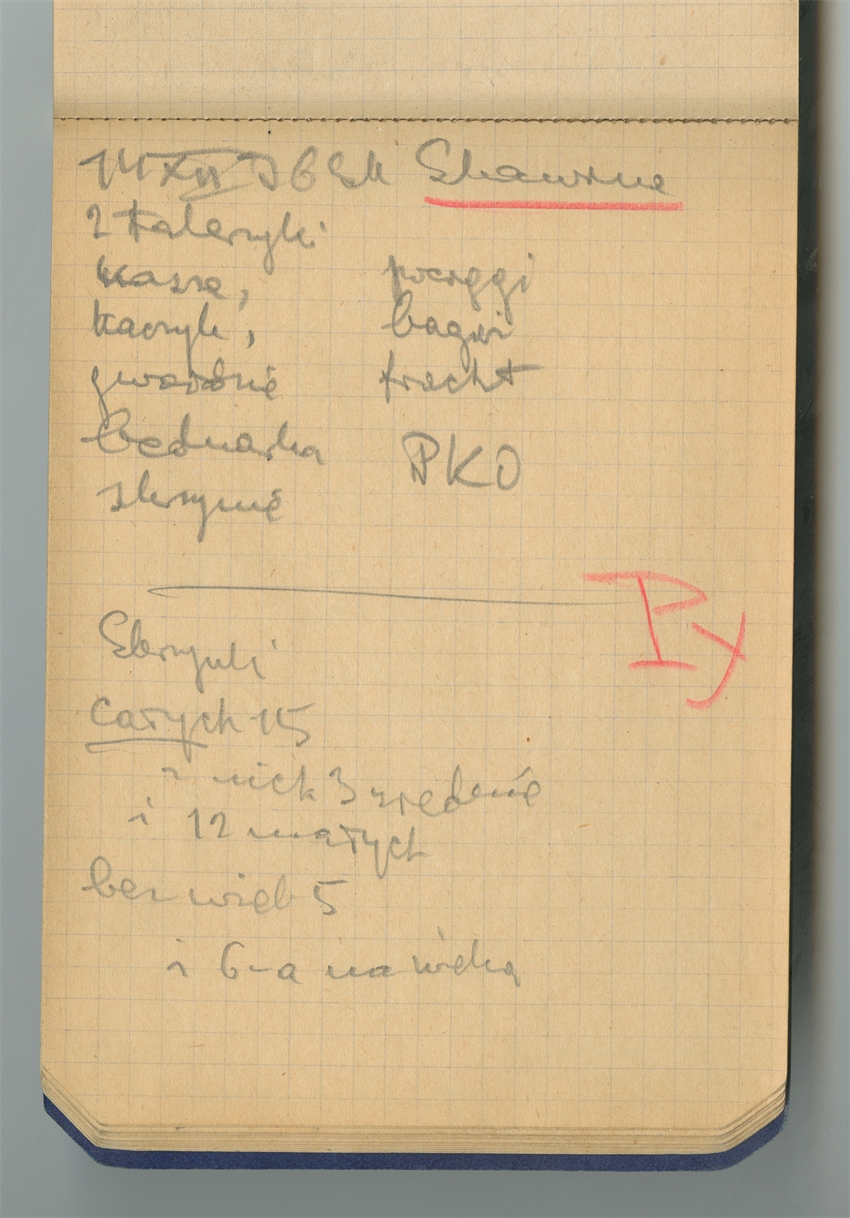 14 XII
2 talerzyki
kasza, pociągi
haczyk, bagaż
gwoździe fracht
bednarka PKO
skrzynie
Skrzynki
całych 15
z nich 3 średnie
i 12 małych
bez wiek 5
i 6-a ma wieka